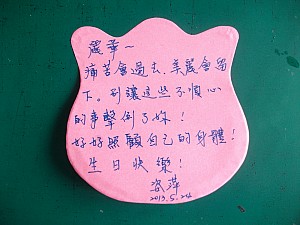 麗華~
痛苦會過去,美麗會留
下。別讓這些不順心
的事擊倒了妳!
好好照顧自己的身體!
生日快樂!
姿萍
2013.5.24